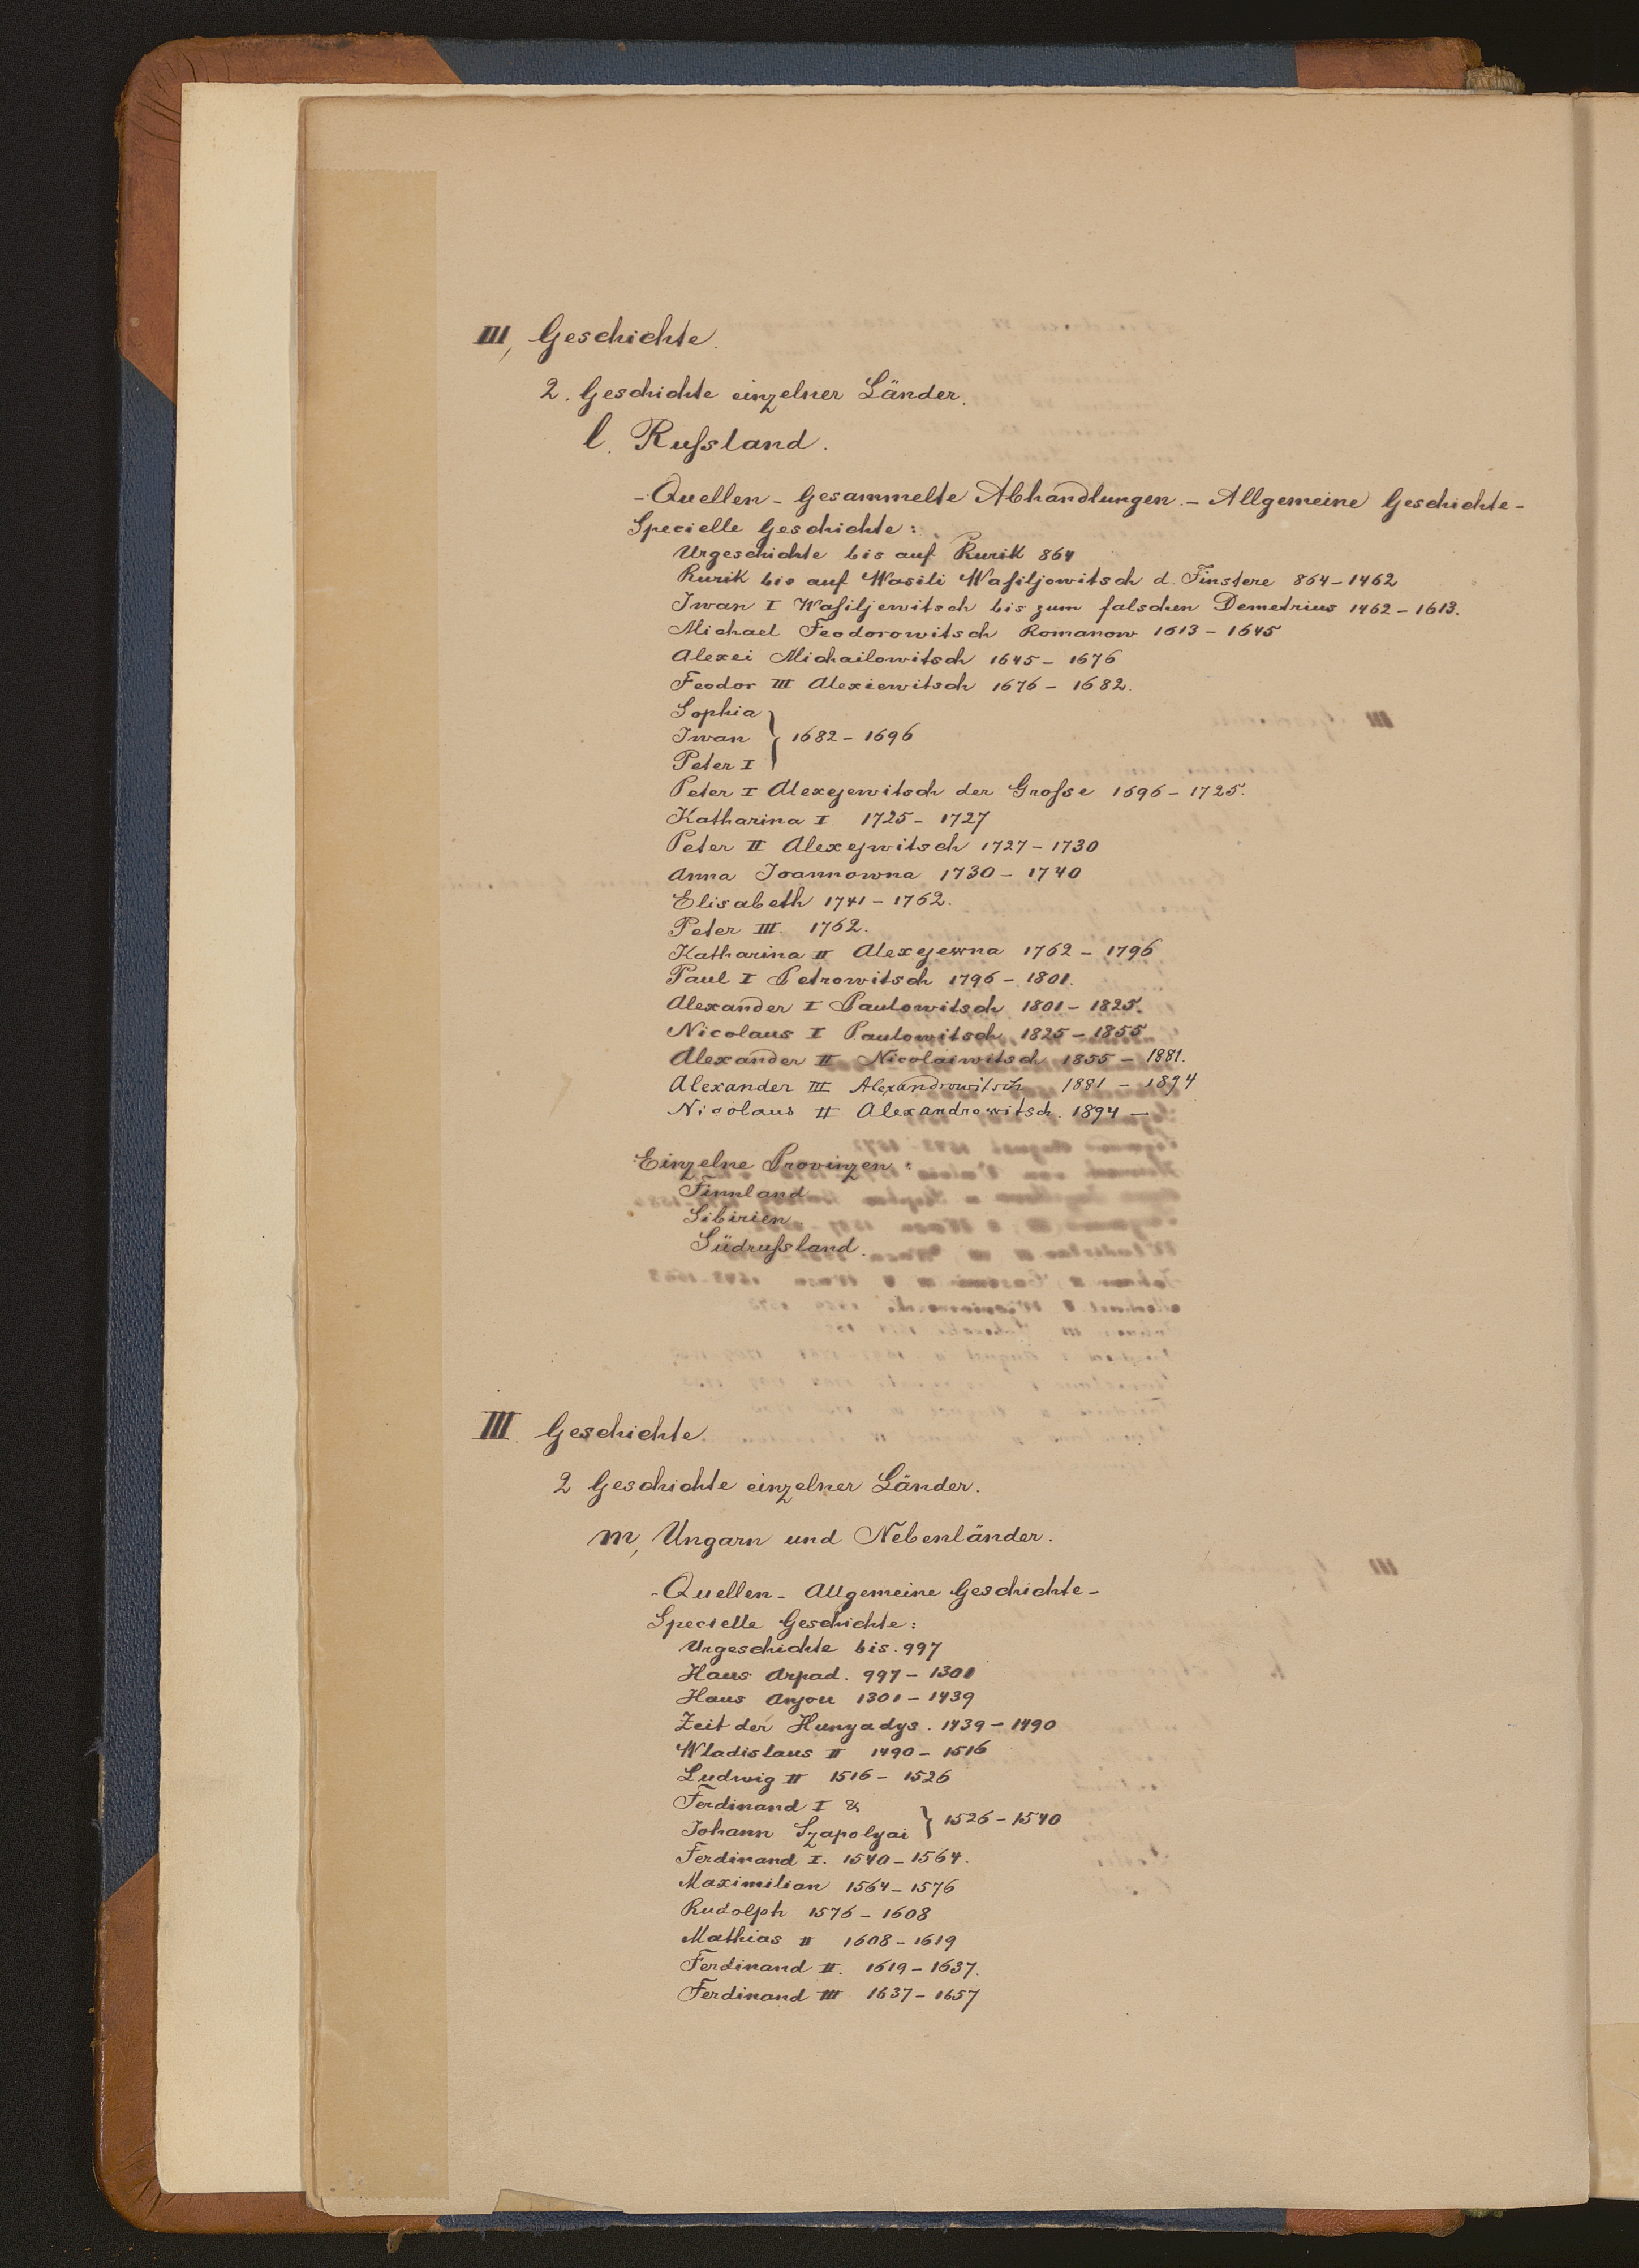 III, Geschichte.
2. Geschichte einzelner Länder.
l. Rußland.
- Quellen - Gesammelte Abhandlungen. - Allgemeine Geschichte -
Specielle Geschichte:
Urgeschichte bis auf Rurik 864
Rurik bis auf Wasili Waßiljowitsch d. Finstere 864 - 1462
Iwan I Waßiljewitsch bis zum falschen Demetrius 1462 - 1613.
Michael Feodorowitsch Romanow 1613 - 1645
Alexei Michailowitsch 1645 - 1676
Feodor III Alexiewitsch 1676 - 1682.
Sophia
Iwan } 1682 - 1696
Peter I
Peter I Alexejewitsch der Große 1696 - 1725.
Katharina I 1725 - 1727
Peter II Alexejwitsch 1727 - 1730
Anna Joannowna 1730 - 1740
Elisabeth 1741 - 1762.
Peter III. 1762.
Katharina II Alexejewna 1762 - 1796
Paul I Petrowitsch 1796 - 1801.
Alexander I Paulowitsch 1801 - 1825.
Nicolaus I Paulowitsch 1825 - 1855
Alexander II Nicolaiwitsch 1855 - 1881.
Alexander III Alexandrowitsch 1881 - 1894
Nicolaus II Alexandrowitsch. 1894 —
Einzelne Provinzen:
Finnland
Sibirien
Südrußland.
III. Geschichte
2 Geschichte einzelner Länder.
m, Ungarn und Nebenländer.
- Quellen - Allgemeine Geschichte -
Specielle Geschichte:
Urgeschichte bis. 997
Haus Arpad. 997 - 1301
Haus Anjou 1301 - 1439
Zeit der Hunyadys. 1439 - 1490
Wladislaus II 1490 - 1516
Ludwig II 1516 - 1526
Ferdinand I &
Johann Szapolyai } 1526 - 1540
Ferdinand I. 1540 - 1564.
Maximilian 1564 - 1576
Rudolph 1576 - 1608
Mathias II 1608 - 1619
Ferdinand II. 1619 - 1637.
Ferdinand III 1637 - 1657